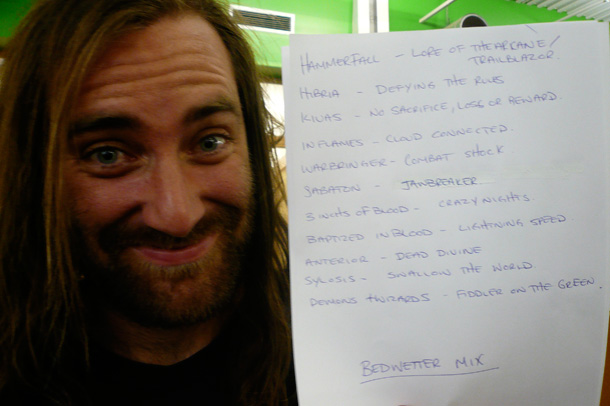 HAMMERFALL - LORE OF THE ARCANE /
TRAILBLAZOR.
HIBRIA - DEFYING THE RULES
KIUAS - NO SACRIFICE, LOSS OR REWARD.
IN FLAMES - CLOUD CONNECTED.
WARBRINGER - COMBAT SHOCK
SABATON - JAWBREAKER
3 INCHES OF BLOOD - CRAZY NIGHTS.
BAPTIZED IN BLOOD - LIGHTNING SPEED
ANTERIOR - DEAD DIVINE
SYLOSIS - SWALLOW THE WORLD.
DEMONS & WIZARDS - FIDDLER ON THE GREEN.
BEDWETTER MIX